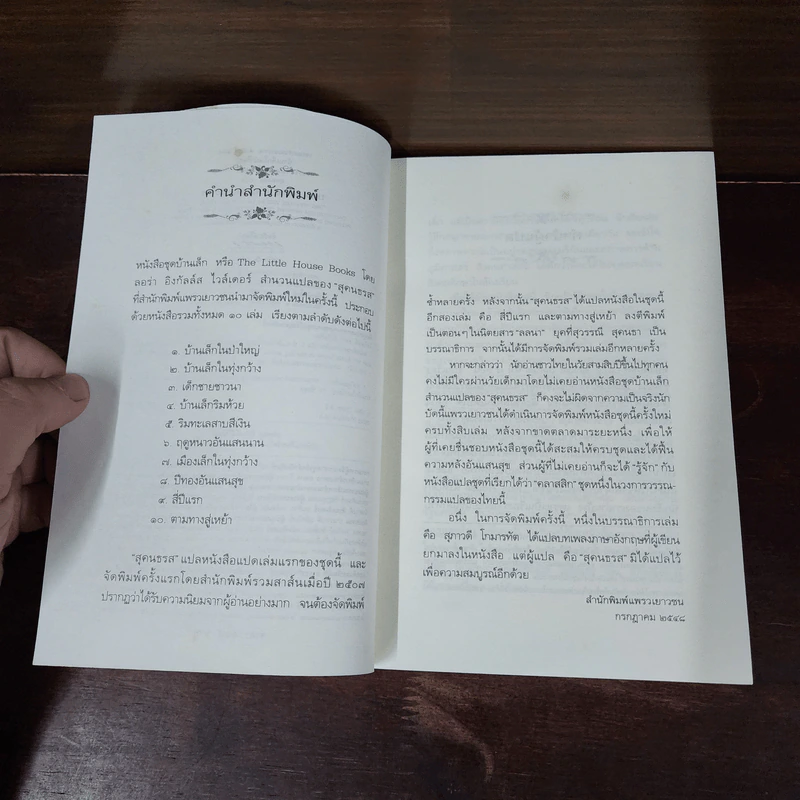 คำนำสำนักพิมพ์
หนังสือชุดบ้านเล็ก หรือ The Little House Books โดย
ลอร่า อิงกัลล์ส ไวล์เดอร์ สำนวนแปลของ "สุคนธรส"
ที่สำนักพิมพ์แพรวเยาวชนนำมาจัดพิมพ์ใหม่ในครั้งนี้ ประกอบ
ด้วยหนังสือรวมทั้งหมด ๑๐ เล่ม เรียงตามลำดับดังต่อไปนี้
๑. บ้านเล็กในป่าใหญ่
๒. บ้านเล็กในทุ่งกว้าง
๓. เด็กชายชาวนา
๔. บ้านเล็กริมห้วย
๕. ริมทะเลสาบสีเงิน
๖. ฤดูหนาวอันแสนนาน
๗. เมืองเล็กในทุ่งกว้าง
๘. ปีทองอันแสนสุข
๙. สี่ปีแรก
๑๐. ตามทางสู่เหย้า
"สุคนธรส" แปลหนังสือแปดเล่มแรกของชุดนี้ และ
จัดพิมพ์ครั้งแรกโดยสำนักพิมพ์รวมสาส์นเมื่อปี ๒๕๐๗
ปรากฏว่าได้รับความนิยมจากผู้อ่านอย่างมาก จนต้องจัดพิมพ์
ซ้ำหลายครั้ง หลังจากนั้น "สุคนธรส" ได้แปลหนังสือในชุดนี้
อีกสองเล่ม คือ สี่ปีแรก และตามทางสู่เหย้า ลงตีพิมพ์
เป็นตอนๆ ในนิตยสาร "ลลนา" ยุคที่สุวรรณี สุคนธา เป็น
บรรณาธิการ จากนั้นได้มีการจัดพิมพ์รวมเล่มอีกหลายครั้ง
หากจะกล่าวว่า นักอ่านชาวไทยในวัยสามสิบปีขึ้นไปทุกคน
คงไม่มีใครผ่านวัยเด็กมาโดยไม่เคยอ่านหนังสือชุดบ้านเล็ก
สำนวนแปลของ "สุคนธรส" ก็คงจะไม่ผิดจากความเป็นจริงนัก
บัดนี้แพรวเยาวชนได้ดำเนินการจัดพิมพ์หนังสือชุดนี้ครั้งใหม่
ครบทั้งสิบเล่ม หลังจากขาดตลาดมาระยะหนึ่ง เพื่อให้
ผู้ที่เคยชื่นชอบหนังสือชุดนี้ได้สะสมให้ครบชุดและได้ฟื้น
ความหลังอันแสนสุข ส่วนผู้ที่ไม่เคยอ่านก็จะได้ "รู้จัก" กับ
หนังสือแปลชุดที่เรียกได้ว่า "คลาสสิก" ชุดหนึ่งในวงการวรรณ-
กรรมแปลของไทยนี้
อนึ่ง ในการจัดพิมพ์ครั้งนี้ หนึ่งในบรรณาธิการเล่ม
คือ สุภาวดี โกมารทัต ได้แปลบทเพลงภาษาอังกฤษที่ผู้เขียน
ยกมาลงในหนังสือ แต่ผู้แปล คือ "สุคนธรส" มิได้แปลไว้
เพื่อความสมบูรณ์อีกด้วย
สำนักพิมพ์แพรวเยาวชน
กรกฎาคม ๒๕๔๘